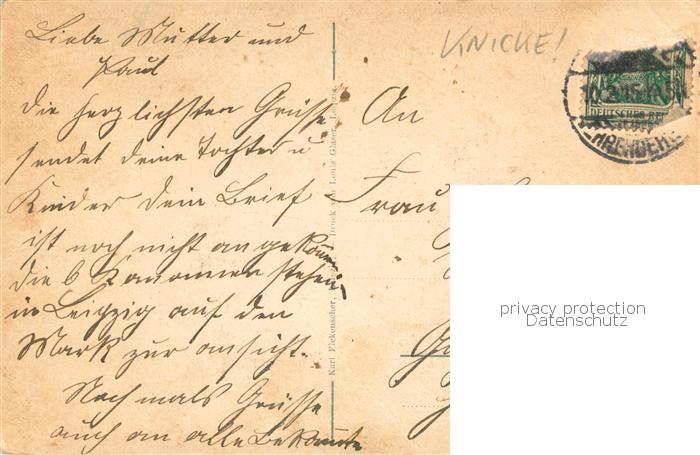 Liebe Mutter und
Paul
die herzlichsten Grüsse
sendet deine Tochter u
Kinder dein Brief
ist noch nicht angekommen
die 6 Kanonen stehen
in Leipzig auf den
Markt zur ansicht.
Nochmals Grüsse
auch an alle Bekannte
Karl Fickenscher, Druck von Louis Glaser, Leipzig.
KNICKE!
An
Frau
DEUTSCHES REICH
privacy protection
Datenschutz